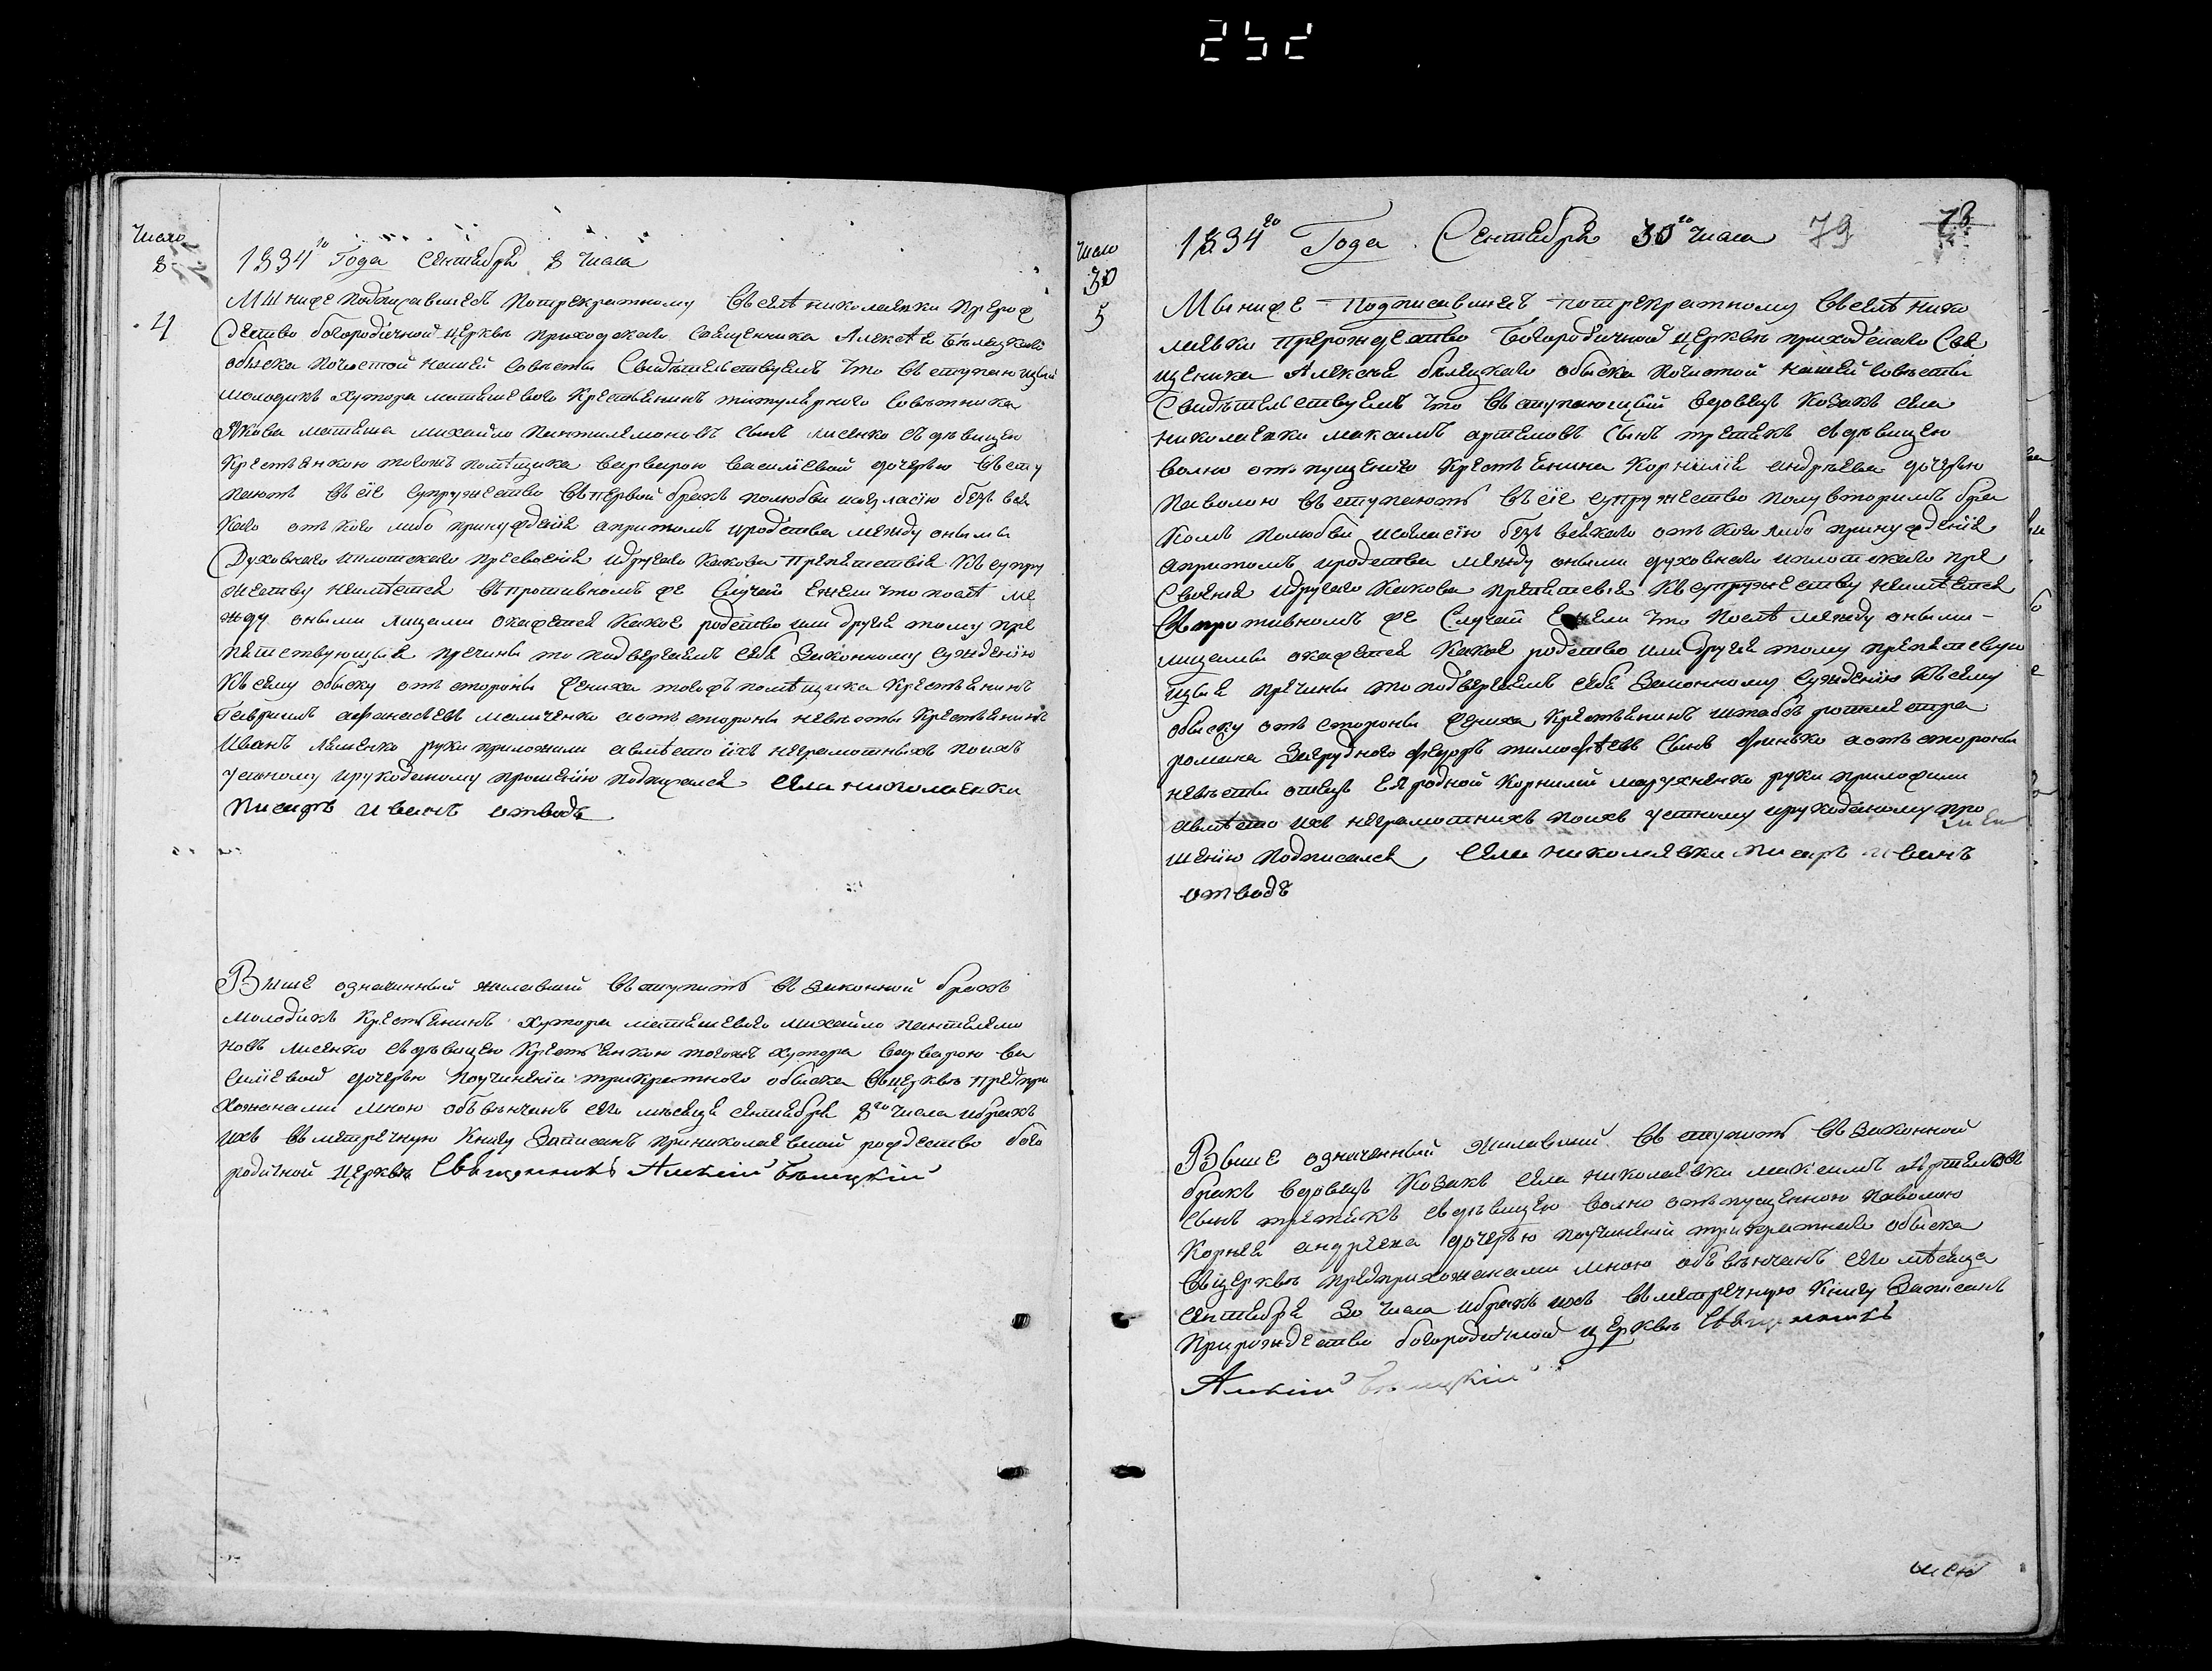 252
Число
8
4
1834го Года Сентября 8 числа
Мы ниже подписавшиесь потрекратному въ селѣ николаевки прерож
дество богородичной церкви приходскаго священика Алексѣя Бѣлецкаго
обыска почистой нашей совѣсти свидѣтельствуемъ что въступающый
молодикъ хутора матвшевого крестьянинъ титулярного совѣтника
Якова матеша михайло пантилемоновъ сынъ лисенко съ дѣвицею
крестьянкою тогожъ помѣщика варварою василіевой дочерью въсту
паютъ въ сіе супружество въпервой бракъ полюбви исогласію безъ вся
каго отъ кого либо принужденія апритомъ иродства между оными
духовнаго иплотскаго пресвоенія идругаго какова препятствія къ супру
жеству неимѣется въпротивномъ же случаи ежели что послѣ ме
жду оными лицами окажется какое родство или другія тому пре
пятствующыя пречины то подвергаемъ себя законному сужденію
къ сему обыску отъ стороны жениха тогожъ помѣщика крестьянинъ
Гаврило афанасіевъ маличенко аотъ стороны невѣсты крестьянинъ
Иванъ ляшенко руки приложили авмѣсто ихъ неграмотныхъ поихъ
усному ирукоданому прошенію подписался села николаевки
писаръ иванъ отводъ
Выше означинный желавшій въступить въ законной бракъ
молодикъ крестьянинъ хутора матяшевого михайло пантелемо
новъ лисенко съ дѣвицею крестьянкою тогожъ хутора варварою ва
силіевой дочерью поучиненіи трикратного обыска въцерквѣ предпри
хожанами мною объвѣнчанъ сего мѣсяця сентября 8го числа ибракъ
ихъ въ метречную книгу записанъ приниколаевской рождество бого
родичной церквѣ Священникъ Алексій Бѣлецкій
Число
30
5
1834го Года Сентября 30го числа 79 78
Мы ниже подписавшиесь потрекратному въ селѣ нико
лаевки прерождество богородичной церкви приходскаго свя
щеника Алексѣя бѣлецкаго обыска почистой нашей совѣсти
свидѣтельствуемъ что въступающій вдовецъ козакъ села
николаевки максимъ артемовъ сынъ третякъ съдѣвицею
волно отпущеного крестьянина корнилія андрѣева дочерью
паволою въступаютъ въ сіе супружество полувторимъ бра
комъ полюбви исогласію безъ всякаго отъ кого либо принужденія
апритомъ иродства между оными духовнаго иплотскаго пре
своенія идругаго какова препятсвія къ супружеству неимѣется
въпротивномъ же случаи ежели что послѣ между оными
лицами окажется какое родство или другія тому препятсвую
щыя пречины то подвергаемъ себя законному сужденію къ сему
обыску отъ стороны жениха крестьянинъ штабъ ротмистра
романа Закрудного федоръ тимофѣевъ сынъ финько аотъ стороны
невѣсты отецъ ея родной корнилій марухненко руки приложили
авмѣсто ихъ неграмотнихъ поихъ устному ирукоданому про
шенію подписался села николаевки писаръ иванъ
отводъ
Выше означенный желавшій въ ступить въ законной
бракъ вдовецъ козакъ села николаевки максимъ артемовъ
сынъ третякъ съдѣвицею волно отъпущенною паволою
корнея андреева дочерью поучиненіи трикратнаго обыска
въцерквѣ предприхожанами мною объвѣнчанъ сего мѣсяца
сентября 30 числа ибракъ ихъ въметречную книгу записанъ
прирождество богородичной церквѣ Священникъ
Алексій Бѣлецкій